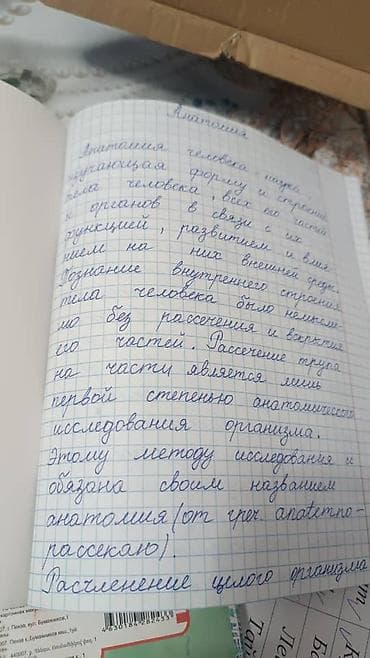 Анатомия
Анатомия человека - наука,
изучающая форму и строение
тела человека, всех его частей
и органов в связи с их
функцией, развитием и влия-
нием на них внешней среды.
Познание внутреннего строения
тела человека было немысли-
мо без рассечения и вскрытия
его частей. Рассечение трупа
на части является лишь
первой степенью анатомического
исследования организма.
Этому методу исследования и
обязана своим названием
анатомия (от греч. anatemno-
рассекаю).
Расчленение целого организма
4630184282433
г. Пенза, вул. Бумажников, 1